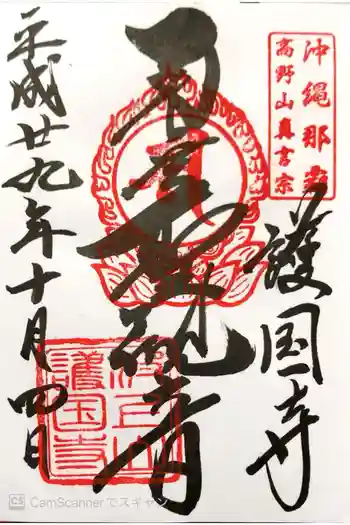 沖縄那覇
高野山真言宗
護国寺
聖観音
波上山
護国寺
平成廿九年十月四日
CS CamScannerでスキャン